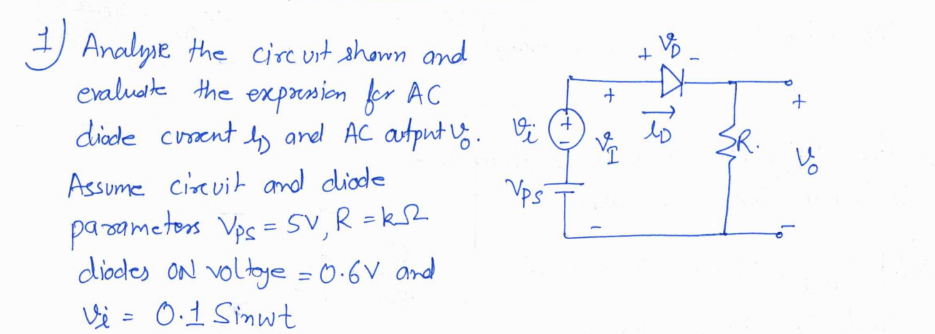 1) Analyse the circuit shown and
evaluate the expression for AC
diode current iD and AC output vo.
Assume circuit and diode
parameters VPS = 5V, R = kΩ
diodes ON voltage = 0.6V and
vi = 0.1 Sinwt
+ vD -
+
iD
vi
+
-
vI
R.
+
vo
VPS
-
-